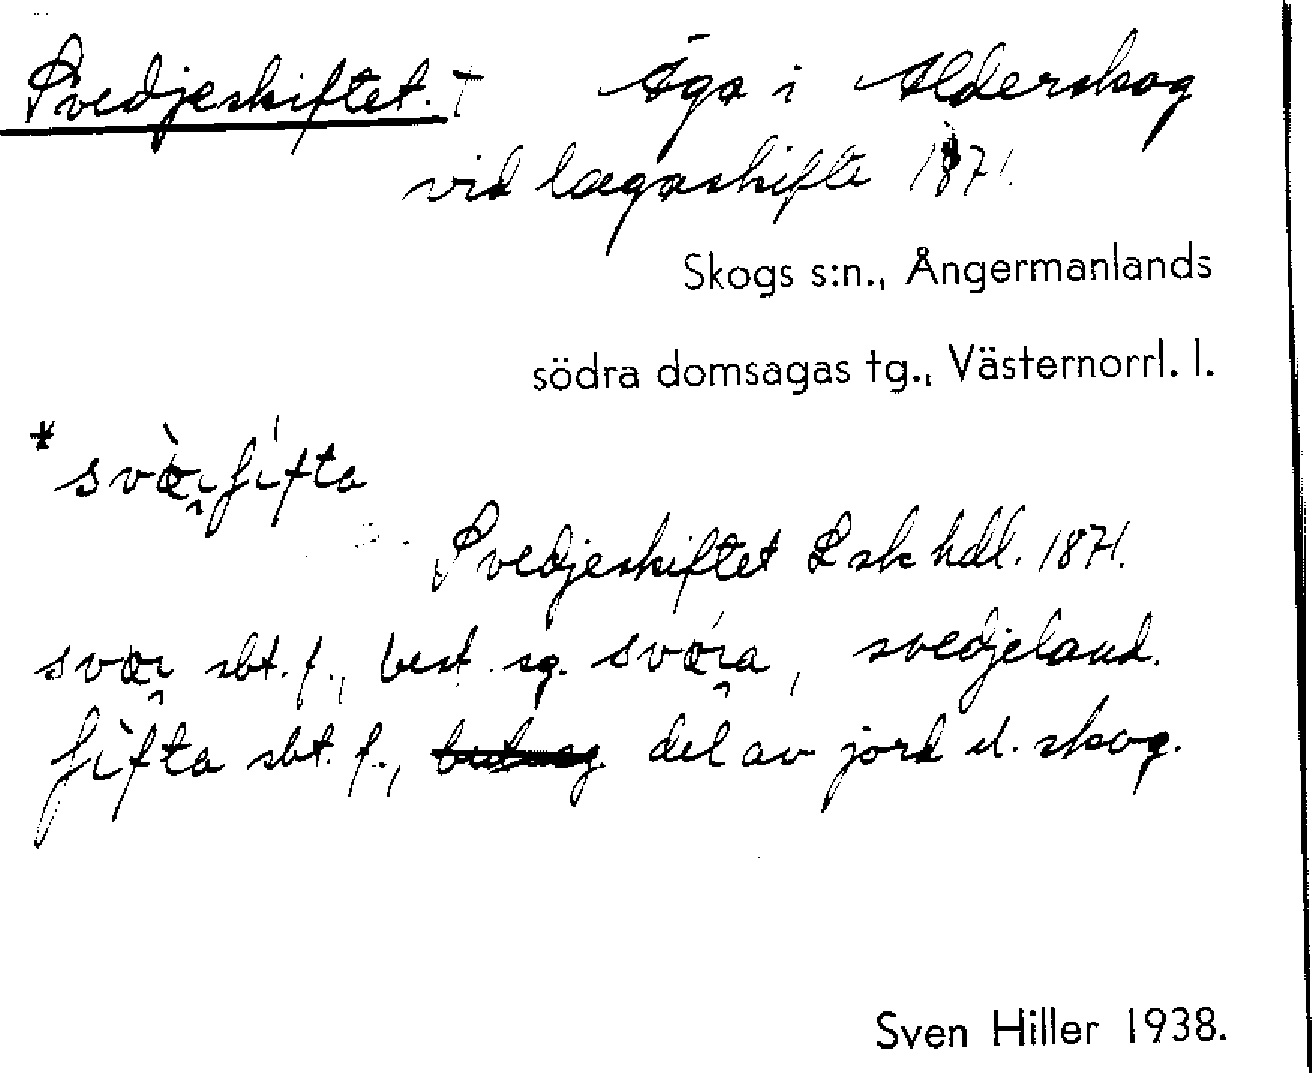 Svedjeskiftet. † Äga i Alderskog
vid lagaskifte 1871.
Skogs s:n., Ångermanlands
södra domsagas tg., Västernorrl. l.
* svæ̀i̯ʃífta
Svedjeskiftet Lsk hdl. 1871.
svæi̯ sbt. f., best. sg. svǽi̯a, svedjeland.
ʃìfta sbt. f., del av jord el. skog.
Sven Hiller 1938.